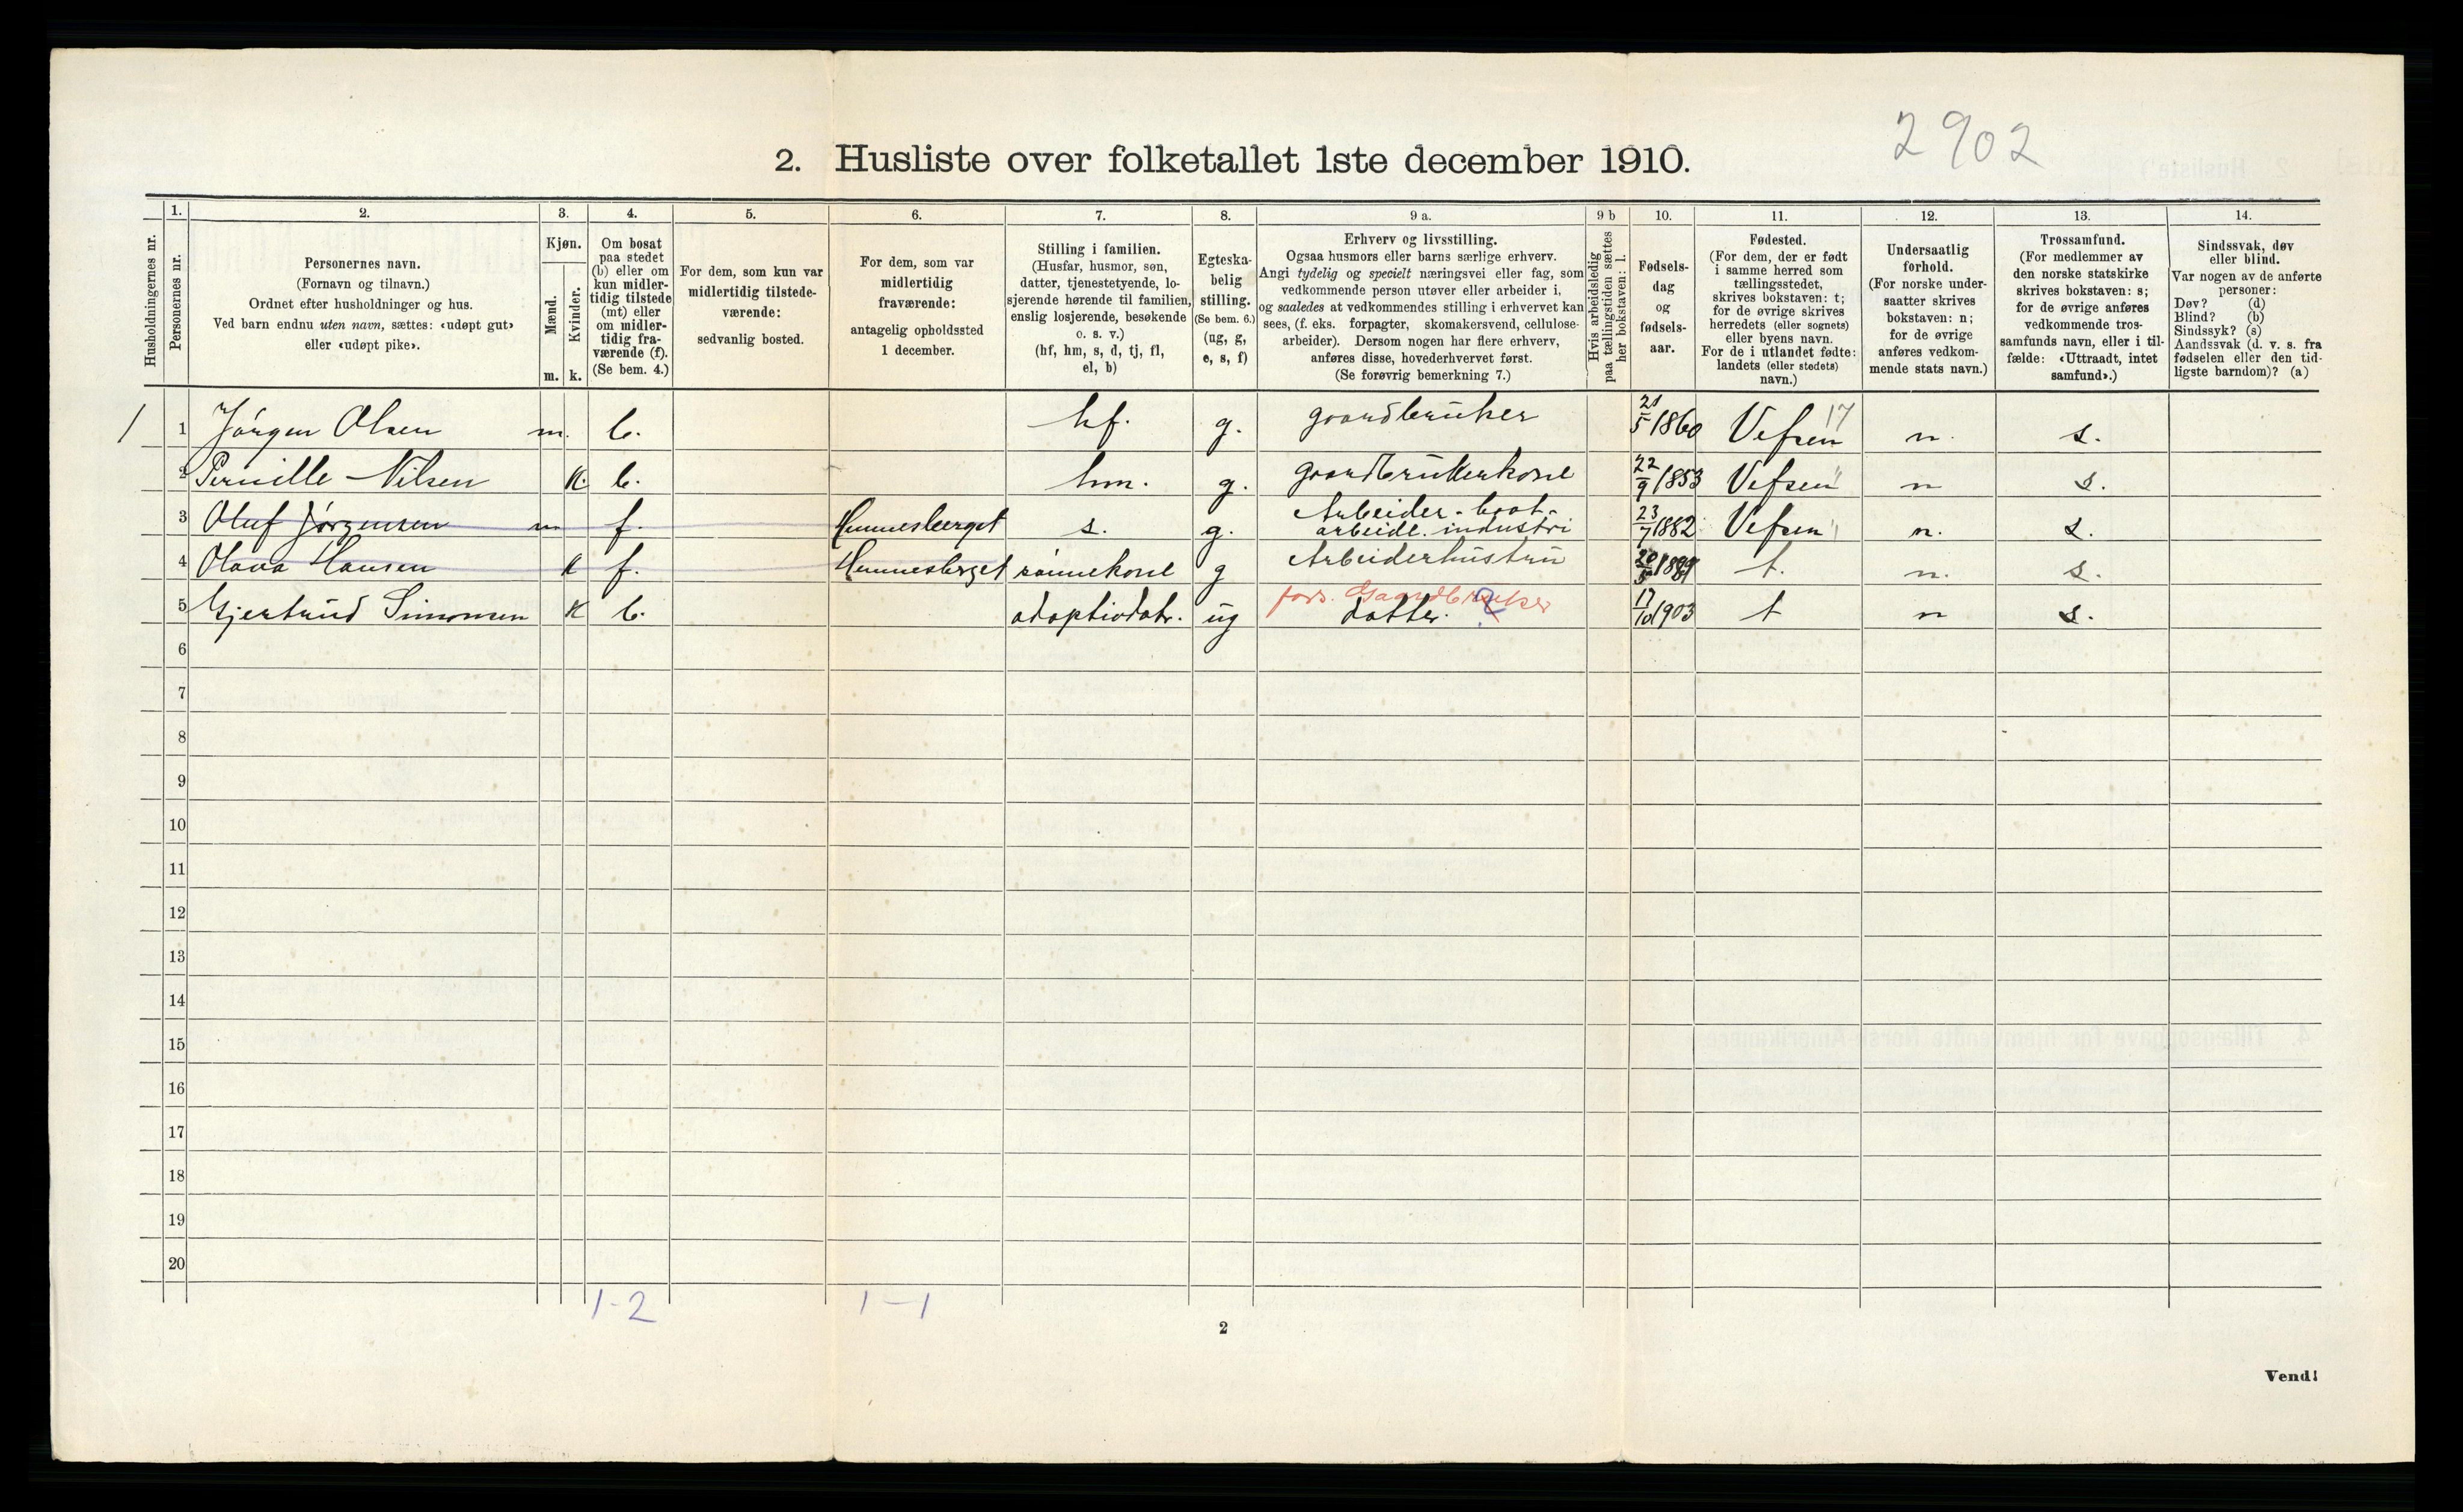 2902
2. Husliste over folketallet 1ste december 1910.
Husholdningernes nr.
1. Personernes nr.
2. Personernes navn.
(Fornavn og tilnavn.)
Ordnet efter husholdninger og hus.
Ved barn endnu uten navn, sættes: «udøpt gut»
eller «udøpt pike».
3. Kjøn.
Mænd. m.
Kvinder. k.
4. Om bosat
paa stedet
(b) eller om
kun midler-
tidig tilstede
(mt) eller
om midler-
tidig fra-
værende (f).
(Se bem. 4.)
5. For dem, som kun var
midlertidig tilstede-
værende:
sedvanlig bosted.
6. For dem, som var
midlertidig
fraværende:
antagelig opholdssted
1 december.
7. Stilling i familien.
(Husfar, husmor, søn,
datter, tjenestetyende, lo-
sjerende hørende til familien,
enslig losjerende, besøkende
o. s. v.)
(hf, hm, s, d, tj, fl,
el, b)
8. Egteska-
belig
stilling.
(Se bem. 6.)
(ug, g,
e, s, f)
9 a. Erhverv og livsstilling.
Ogsaa husmors eller barns særlige erhverv.
Angi tydelig og specielt næringsvei eller fag, som
vedkommende person utøver eller arbeider i,
og saaledes at vedkommendes stilling i erhvervet kan
sees, (f. eks. forpagter, skomakersvend, cellulose-
arbeider). Dersom nogen har flere erhverv,
anføres disse, hovederhvervet først.
(Se forøvrig bemerkning 7.)
9 b Hvis arbeidsledig
paa tællingstiden sættes
her bokstaven: l.
10. Fødsels-
dag
og
fødsels-
aar.
11. Fødested.
(For dem, der er født
i samme herred som
tællingsstedet,
skrives bokstaven: t;
for de øvrige skrives
herredets (eller sognets)
eller byens navn.
For de i utlandet fødte:
landets (eller stedets)
navn.)
12. Undersaatlig
forhold.
(For norske under-
saatter skrives
bokstaven: n;
for de øvrige
anføres vedkom-
mende stats navn.)
13. Trossamfund.
(For medlemmer av
den norske statskirke
skrives bokstaven: s;
for de øvrige anføres
vedkommende tros-
samfunds navn, eller i til-
fælde: «Uttraadt, intet
samfund».)
14. Sindssvak, døv
eller blind.
Var nogen av de anførte
personer:
Døv? (d)
Blind? (b)
Sindssyk? (s)
Aandssvak (d. v. s. fra
fødselen eller den tid-
ligste barndom)? (a)
1 1 Jørgen Olsen m. b. hf. g. gaardbruker 21/5 1860 Vefsen 17 n. s.
2 Pernille Nilsen k. b. hm. g. gaardbrukerkone 22/9 1853 Vefsen " n s.
3 Oluf Jørgensen m f. Hemnesberget s. g. Arbeider - baat-
arbeide. industri 23/7 1882 Vefsen " n. s.
4 Olava Hansen k f. Hemnesberget sønnekone g Arbeiderhustru t. n. s.
5 Gjertrud Simonsen k b. adoptivdatr. ug fors. Gaardbruker
datter. 17/10 1903 t n s.
6
7
8
9
10
11
12
13
14
15
16
17
18
19
20
1-2 1-1
2
Vend!